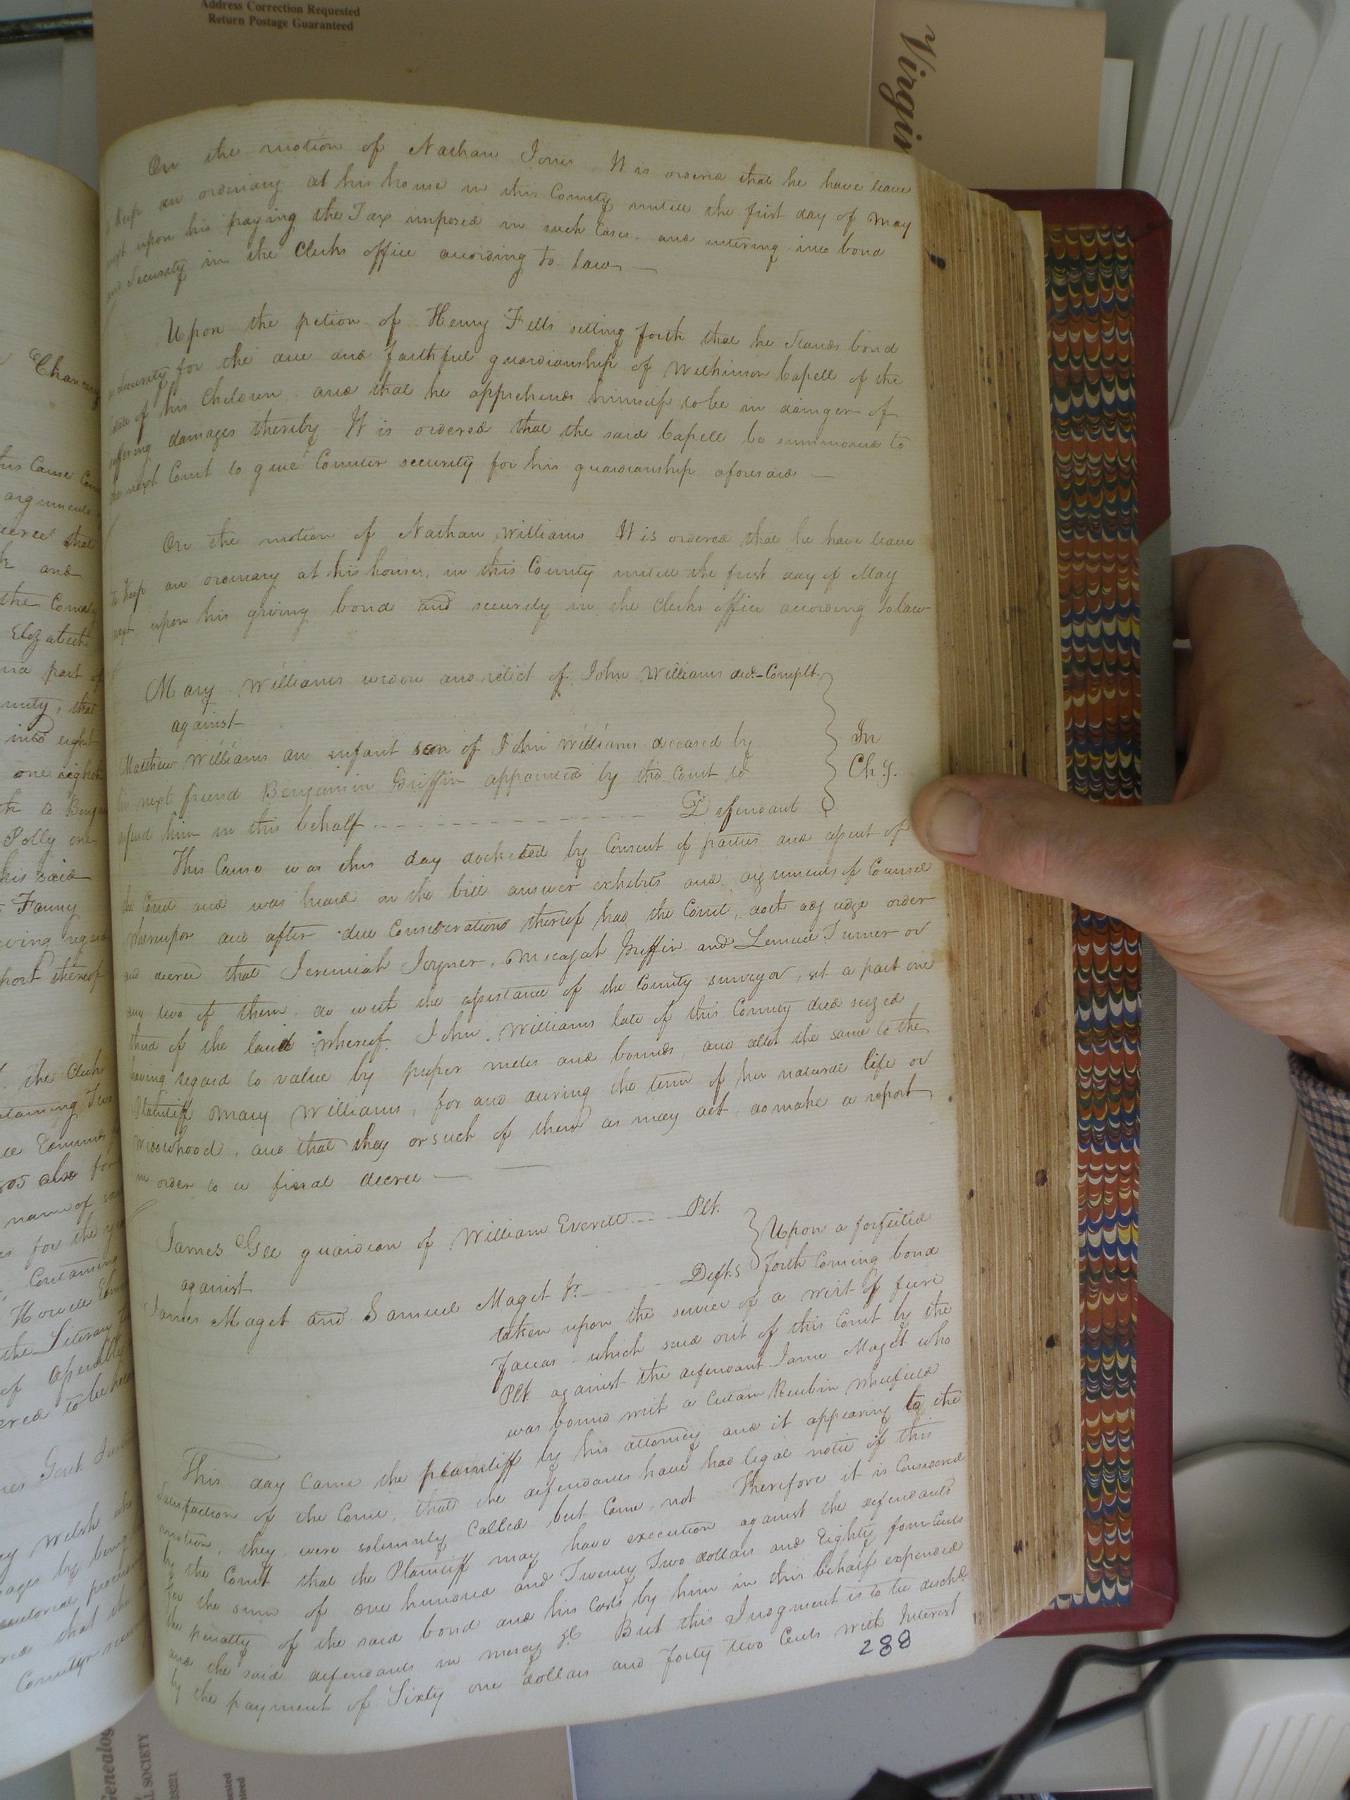 Address Correction Requested
Return Postage Guaranteed
Virgin
On the motion of Nathan Jones It is ordered that he have leave
to keep an ordinary at his house in this County untill the first day of May
next upon his paying the Tax imposed in such Cases and entering into bond
and Security in the Clerks office according to law
Upon the petion of Henry Felts setting forth that he stands bond
as Security for the due and faithful guardianship of Wilkinson Capell of the
of his Children and that he apprehends himself to be in danger of
suffering damages thereby It is ordered that the said Capell be summoned to
the next Court to give Counter security for his guardianship aforesaid
On the motion of Nathan Williams It is ordered that he have leave
to keep an ordinary at his house, in this County untill the first day of May
next upon his giving bond and security in the Clerks office according to law
Mary Williams widow and relict of John Williams decd. Complt
against
Matthew Williams an infant son of John Williams deceased by
his next friend Benjamin Griffin appointed by the Court to
defend him in this behalf Defendant
In
Chy.
This Cause was this day docketed by Consent of parties and assent of
the Court and was heard on the bill answer exhibits and arguments of Counsel
whereupon and after due Consideration thereof had the Court, doth adjudge order
and decree that Jeremiah Joyner, Micajah Griffin and Lemuel Turner or
any two of them, do with the assistance of the County surveyor, set a part one
third of the land whereof John Williams late of this County died seized
having regard to value by proper metes and bounds, and allot the same to the
Plaintiff Mary Williams, for and during the term of her natural life or
widowhood, and that they or such of them as may act, do make a report
in order to a final decree
James Gee guardian of William Everett Plt.
against
James Maget and Samuel Maget Jr. Defts
Upon a forfeited
forth Coming bond
taken upon the service of a writ of fieri
facias which sued out of this Court by the
Plt against the defendant James Maget who
was bound with a Certain Reubin Whitfield
This day came the plaintiff by his attorney and it appearing to the
satisfaction of the Court, that the defendants have had legal notice of this
motion, they were solemnly Called but Came not Therefore it is Considered
by the Court that the Plaintiff may have execution against the defendants
for the sum of one hundred and Twenty Two dollars and Eighty four Cents
the penalty of the said bond and his Costs by him in this behalf expended
and the said defendants in mercy &C But this Judgment is to be dischd.
by the payment of Sixty one dollars and forty two Cents with Interest
288
Chancery
this Cause
arguments
that
and
the
Elizabeth
part of
into eight
one eighth
Polly one
his said
Fanny
report thereof
the Clerk
also for
name of
for the
Containing
the Literary
of
to be
Welsh
ages by
that the
Genealog
L SOCIETY
23221